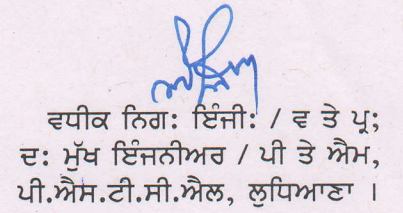 ਵਧੀਕ ਨਿਗ: ਇੰਜੀ: / ਵ ਤੇ ਪ੍ਰ;
ਦ: ਮੁੱਖ ਇੰਜਨੀਅਰ / ਪੀ ਤੇ ਐਮ,
ਪੀ.ਐਸ.ਟੀ.ਸੀ.ਐਲ, ਲੁਧਿਆਣਾ ।